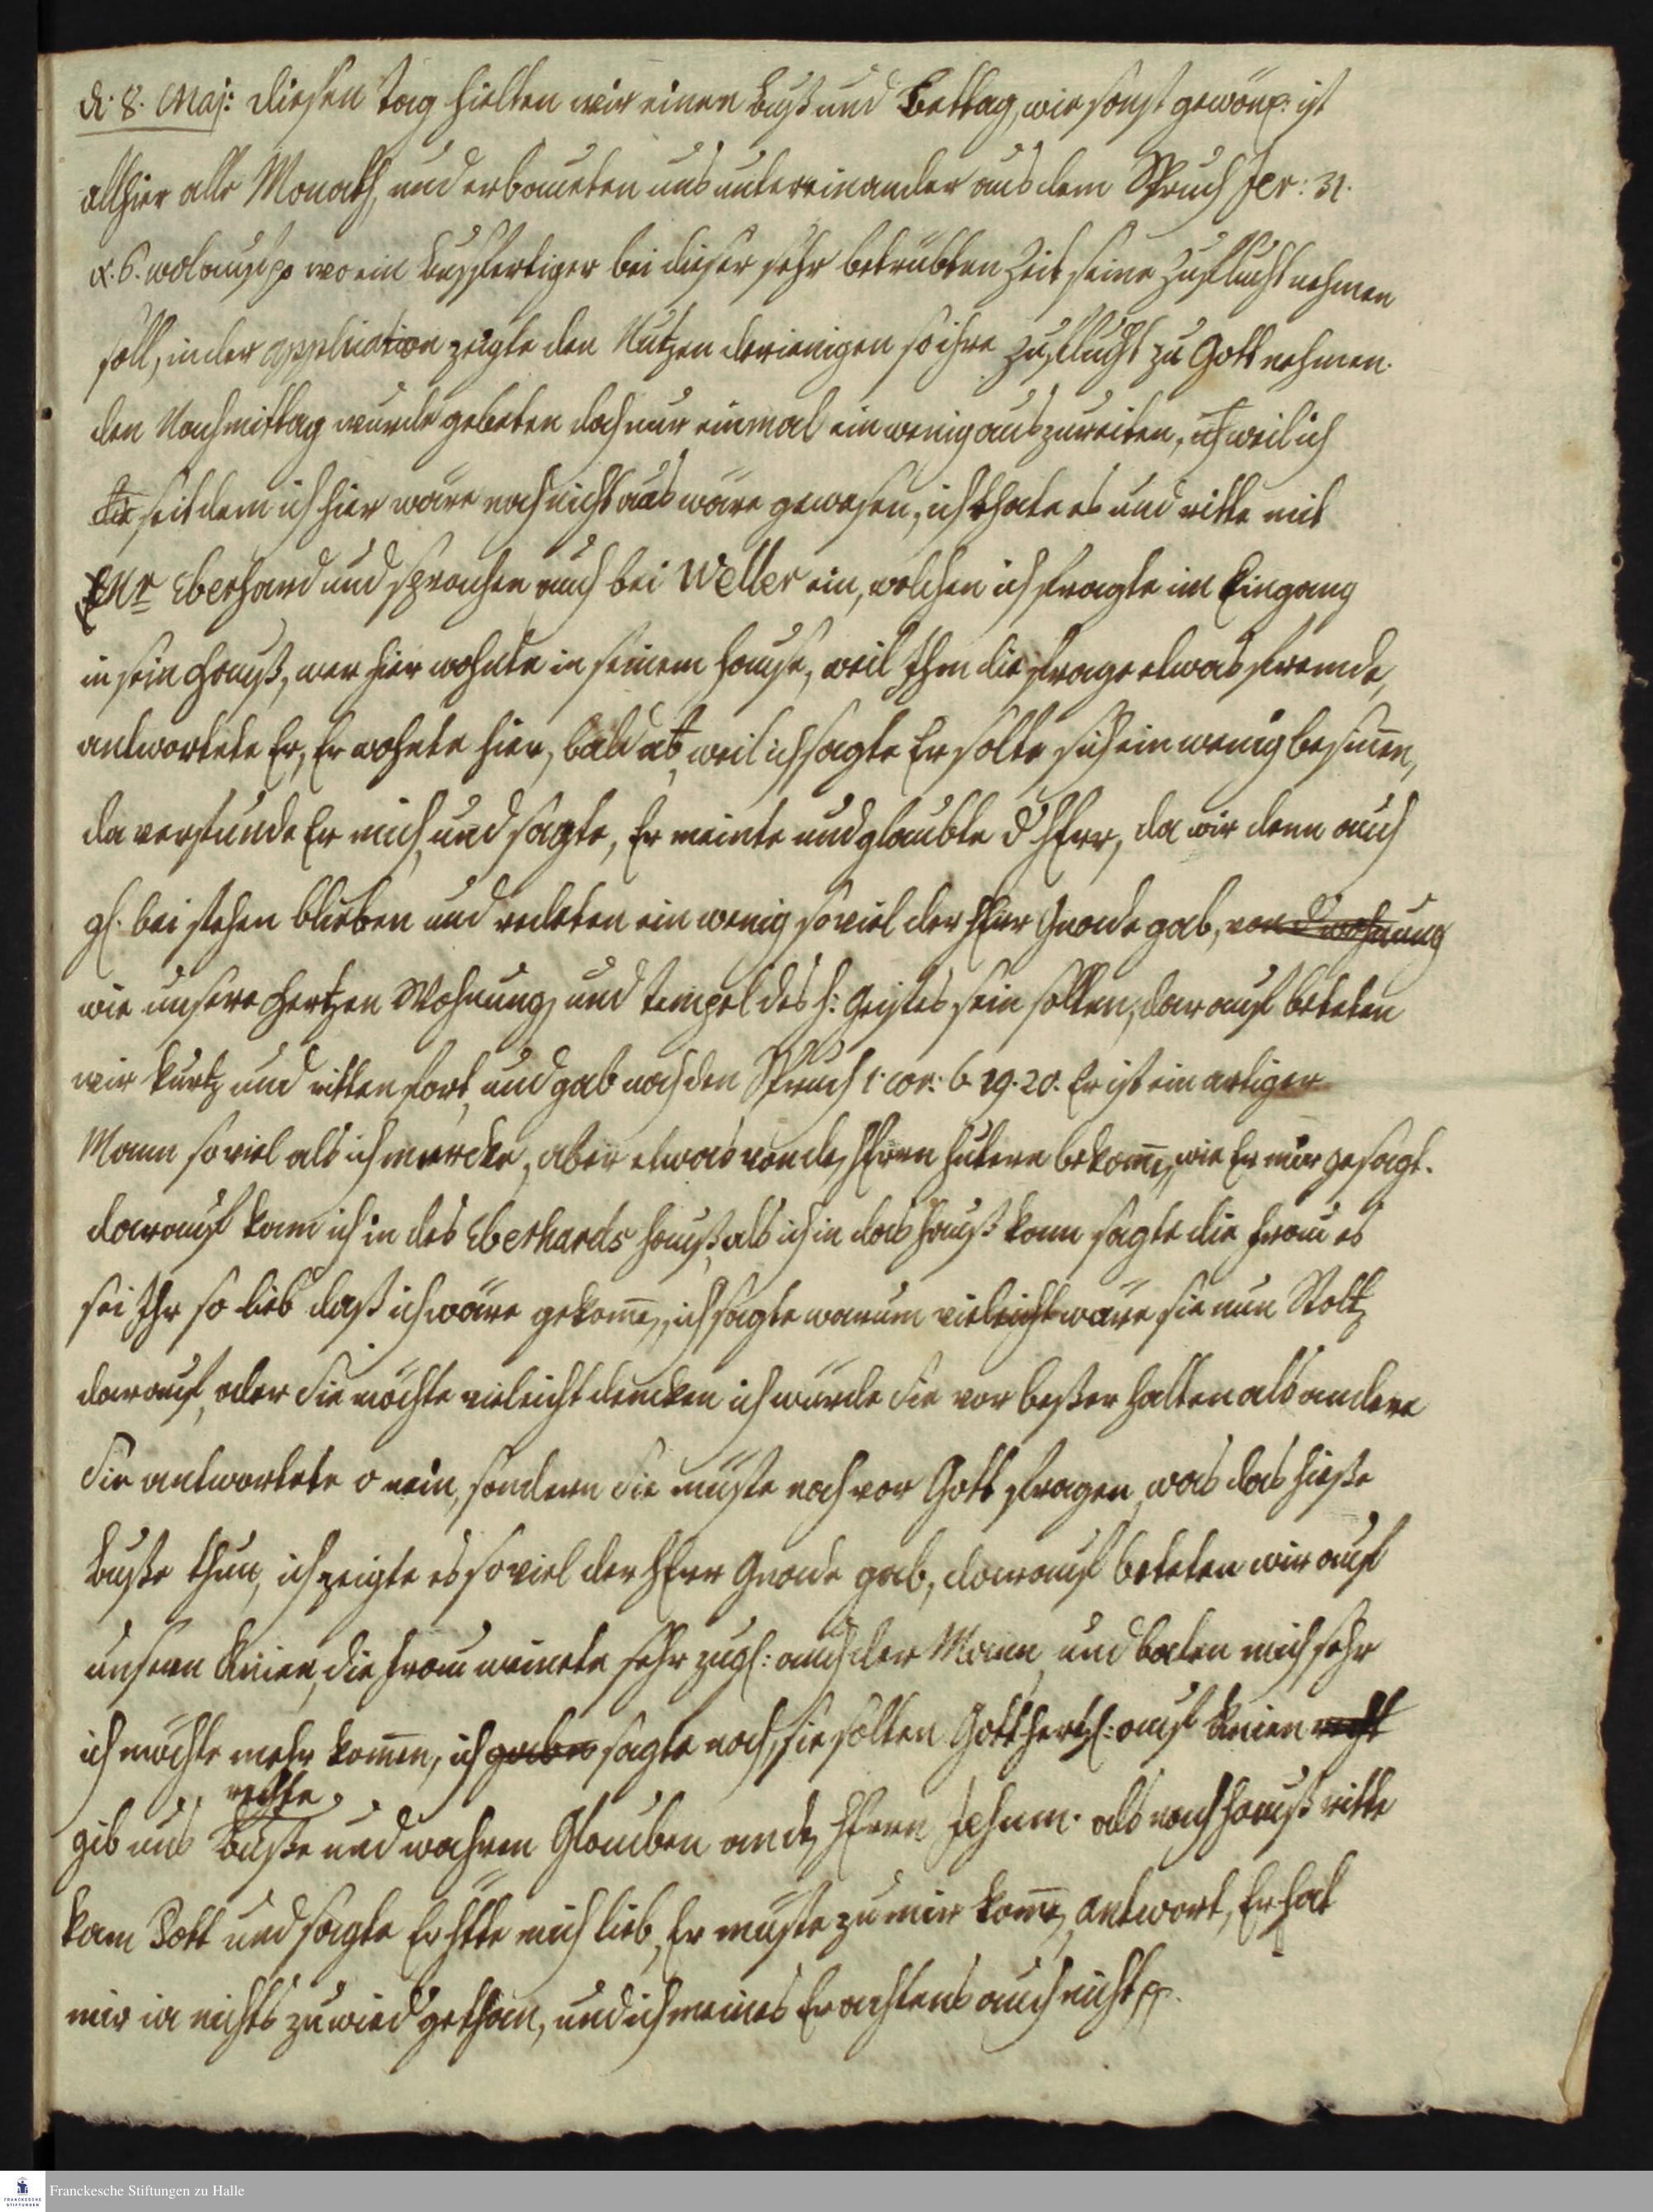 d. 8. Maj: diesen Tag hielten wir einen Buß und Bettag, wie sonst gewönl: ist
allhier alle Monath, und erbaueten uns untereinander aus dem Spruch Jer: 31.
v. 6. wolauf pp wo ein Bussfertiger bei dieser sehr betrübten Zeit seine Zuflucht nehmen
soll, in der application zeigte den Nutzen derienigen so ihre Zuflucht zu Gott nehmen.
den Nachmittag wurde gebeten doch nur einmal ein wenig auszureiten, weil ich
seit dem ich hier wäre noch nicht aus wäre gewesen, ich thate es und ritte mit
Mr Eberhard und sprachen auch bei Weller ein, welchen ich fragte im Eingang
in sein Hauß, wer hier wohnte in seinem Hause, weil Ihm die frage etwas fremde,
antwortete Er, Er wohnte hier, bald ab, weil ich sagte Er solte sich ein wenig besinnen,
da verstunde Er mich, und sagte, Er meinte und glaubte d HErr, da wir denn auch
gl. bei stehen blieben und redeten ein wenig so viel der HErr Gnade gab, von d wohnung
wie unsere Hertzen Wohnung und Tempel des H: Geistes sein solten, darauf beteten
wir kurtz und ritten fort, und gab noch den Spruch 1. cor: 6. 19. 20. Er ist ein artiger
Mann so viel als ich mercke, aber etwas von des HErrn bekommen, wie Er mir gesagt.
darauf kam ich in des Eberhards Hauß, als ich in das Hauß kam sagte die Frau es
sei Ihr so lieb daß ich wäre gekommen, ich sagte warum vieleicht wäre sie nun Stoltz
darauf, oder Sie möchte vieleicht dencken ich würde Sie vor beßer halten als andere
Sie antwortete o nein, sondern Sie müste noch vor Gott fragen, was das hieße
Buße thun, ich zeigte es so viel der HErr Gnade gab, darauf beteten wir auf
unsern Knien, die Frau weinete sehr zugl: auch der Mann, und baten mich sehr
ich möchte mehr kommen, ich gabe sagte noch, sie solten Gott hertzl: auf Knien recht
rechte
gib uns Buße und wahren Glauben an den HErrn Jesum. als nach Hauß ritte
kam Pott und sagte Er hätte mich lieb, Er müste zu mir kommen, antwort, Er hat
mir ia nichts zuwied gethan, und ich meines Erachtens auch nicht pp.
Franckesche Stiftungen zu Halle